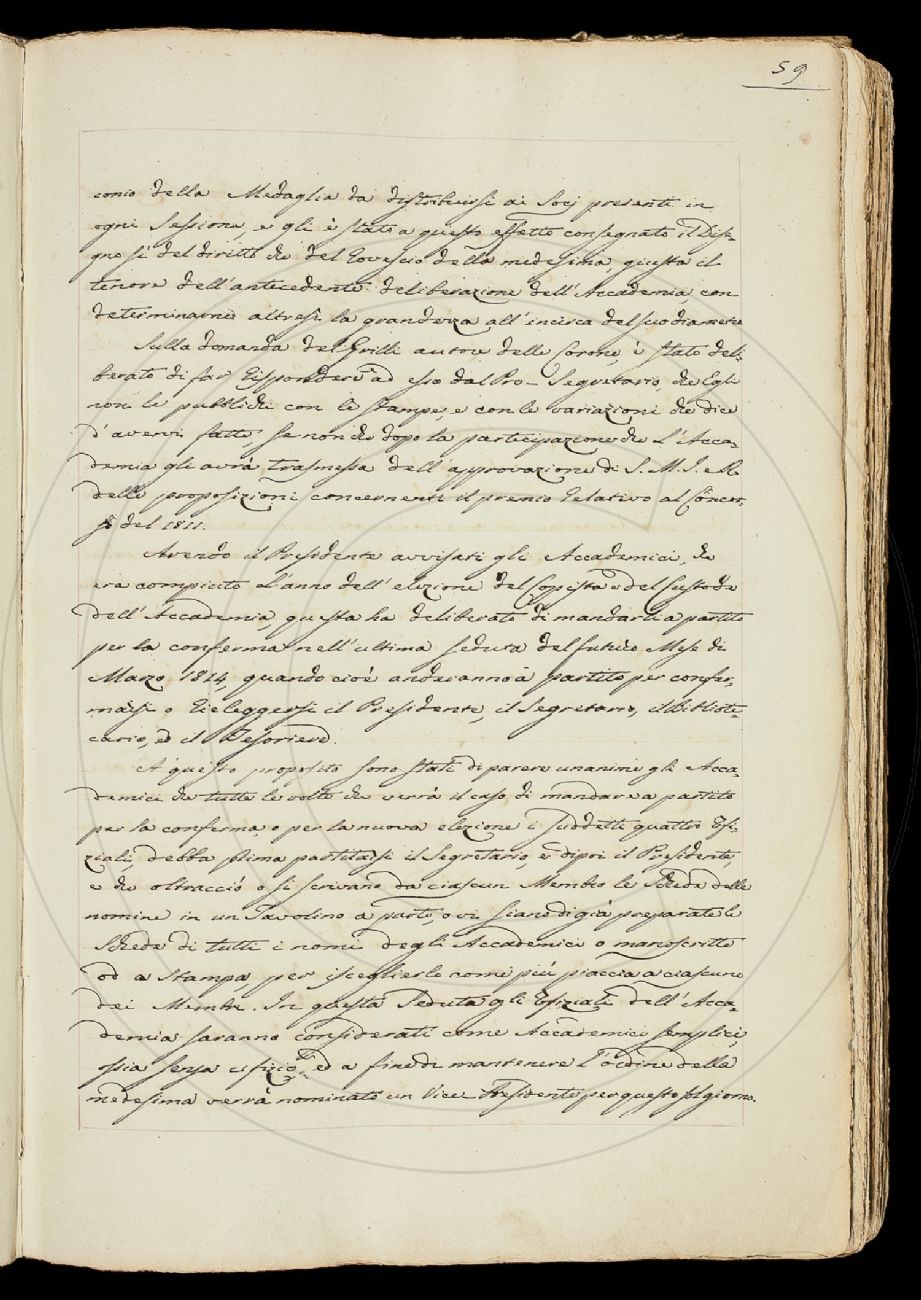 59
conio della Medaglia da distribuirsi ai Socj presenti in
ogni Sessione, e gli è stato a questo effetto consegnato il Dise-
gno sì del diritto che del rovescio della medesima, giusta il
tenore dell'antecedente deliberazione dell'Accademia, con
determinarne altresì la grandezza all'incirca del suo diametro
Sulla domanda del Grilli autore delle Corone, è stato deli-
berato di far rispondere ad esso dal Pro-Segretario, che Egli
non le pubblichi con le stampe, e con le variazioni che dice
d'avervi fatte, se non che dopo la partecipazione che l'Acca-
demia gli avrà trasmessa dell'approvazione di S. M. I. e R.
delle proposizioni concernenti il premio relativo al Concor-
so del 1811.
Avendo il Presidente avvisati gli Accademici, che
era compiuto l'anno dell'elezione del Copista e del Custode
dell'Accademia, questa ha deliberato di mandarli a partito
per la conferma nell'ultima seduta del futuro Mese di
Marzo 1814, quando cioè anderanno a partito per confer-
marsi o rieleggersi il Presidente, il Segretario, il Bibliote-
cario, ed il Tesoriere.
A questo proposito sono stati di parere unanime gli Acca-
demici che tutte le volte che verrà il caso di mandare a partito
per la conferma, o per la nuova elezione i suddetti quattro Ofi-
ziali, debba prima partitarsi il Segretario, e dipoi il Presidente,
e che oltracciò o si scrivano da ciascun Membro le Schede delle
nomine in un Tavolino a parte, o vi siano di già preparate le
Schede di tutti i nomi degli Accademici o manoscritte
od a stampa, per iscegliere come più piaccia a ciascuno
dei Membri. In questa Seduta gli Ofiziali dell'Acca-
demia saranno considerati come Accademici semplici,
ossia senza ufizio, ed a fine di mantenere l'ordine della
medesima verrà nominato un Vice Presidente per questo sol giorno.